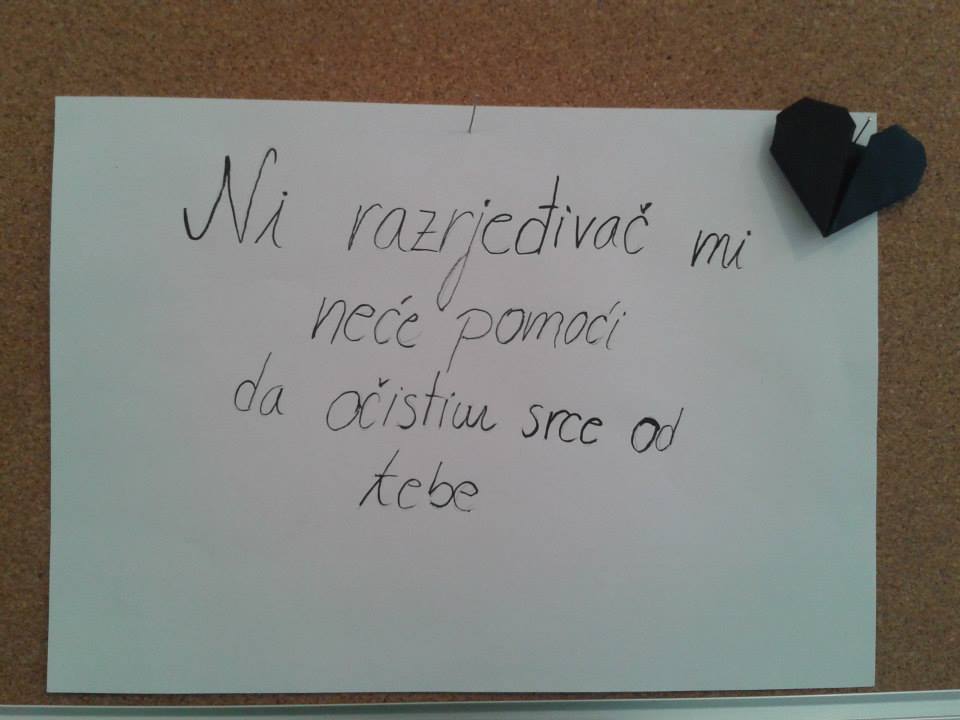 Ni razrjeđivač mi
neće pomoći
da očistim srce od
tebe